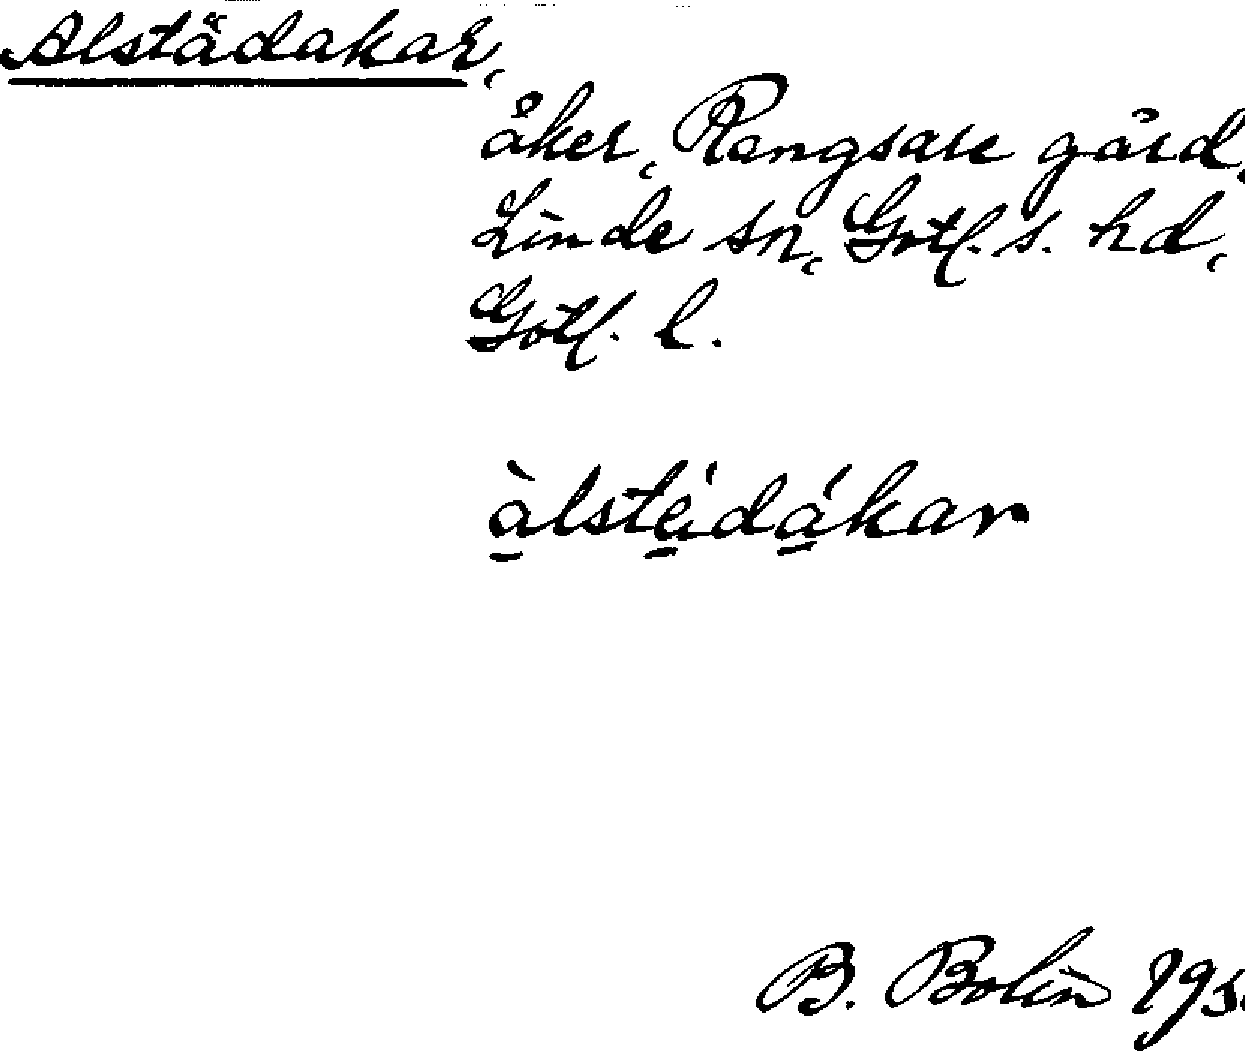 Alstädakar,
åker, Rangsare gård,
Linde sn, Gotl. s. hd,
Gotl. l.
àlstéidákar
B. Bolin